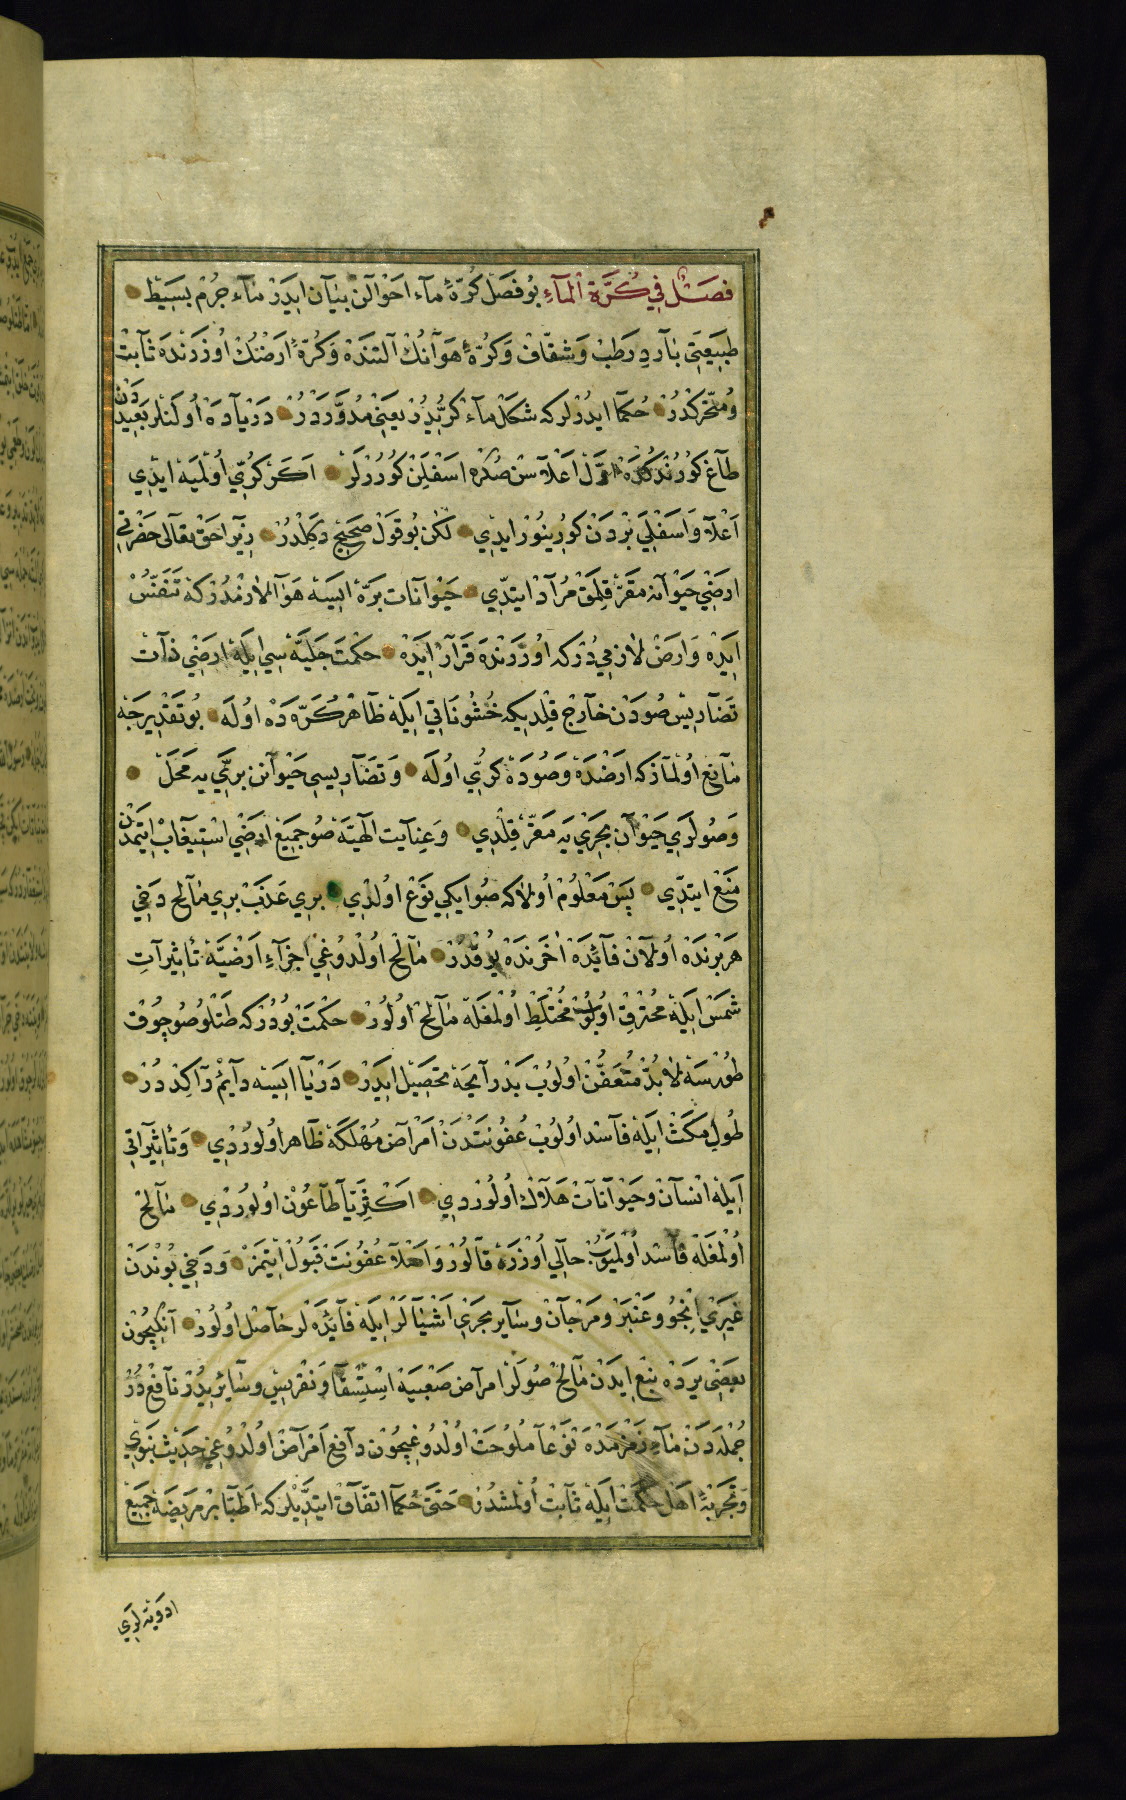 فصل في كرّة الماء بو فصل كرّهٔ ماء احوالن بيان ايدر ماء جرم بسيط
طبيعتى بارد رطب وشفاف وكرّهٔ هوانك التنده وكرّهٔ ارضنك اوزرنده ثابت
ومتحركدر حكما ايدرلر كه شكل ماء كرّيدر يعنى مدوّردر درياده اولنلر بعيددن
طاغ كورندكده اوّل اعلاسن صكره اسفلن كوررلر اكر كرّي اولميه ايدي
اعلا واسفلى بردن كورينور ايدي لكن بو قول صحيح دكلدر زيرا حق تعالى حضرتي
ارضي حيوانه مقرّ قلمق مراد ايتدي حيوانات برّه ايسه هوا لازمدر كه تنفّس
ايده وارض لازميدر كه اوزرنده قرار ايده حكمت جليّه سي ايله ارضي ذات
تضاريس صودن خارج قلديكه خشوناتي ايله ظاهر كرّه ده اوله بو تقديرجه
مانع اولماز كه ارضده وصوده كرّي اوله وتضاريسي حيوانن برّي يه محلّ
وصولري حيوان بحري يه مقرّ قلدي وعنايت الهيّه صو جميع ارضي استيعاب ايتمدن
منع ايتدي پس معلوم اولا كه صو ايكي نوع اولدي بري عذب بري مالح دخي
هر برنده اولان فائده اخرنده يوقدر مالح اولدوغي اجزاء ارضيّه تاثيرات
شمس ايله محترق اولوب مختلط اولمغله مالح اولور حكمت بودر كه طتلو صو چوق
طورسه لابدّ متعفّن اولوب بد رايحه تحصيل ايدر دريا ايسه دايم راكددر
طول مكث ايله فاسد اولوب عفونتدن امراض مهلكه ظاهر اولوردي وتاثيراتي
ايله انسان وحيوانات هلاك اولوردي اكثريا طاعون اولوردي مالح
اولمغله فاسد اولميوب حالي اوزره قالور واصلا عفونت قبول ايتمز ودخي بوندن
غيري انجو وعنبر ومرجان وساير بحري اشيالر ايله فائده لر حاصل اولور انكيچون
بعضي يرده نبع ايدن مالح صولر امراض صعبيه استسقا ونقريس وسايريدر نافع در
جمله دن ماء زمزمده نوعا ملوحت اولدوغيچون دافع امراض اولدوغي حديث نبوي
وتجربهٔ اهل حكمت ايله ثابت اولمشدر حتى حكما اتفاق ايتديلر كه اطبا بر مريضه جميع
ادويه لري